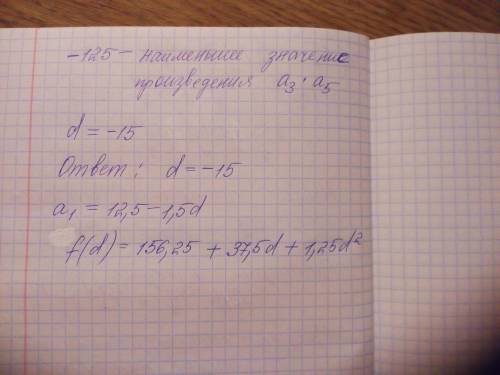 -125 - наименьшее значение
произведения a₃ · a₅
d = -15
Ответ: d = -15
a₁ = 12,5 - 1,5d
f(d) = 156,25 + 37,5d + 1,25d²